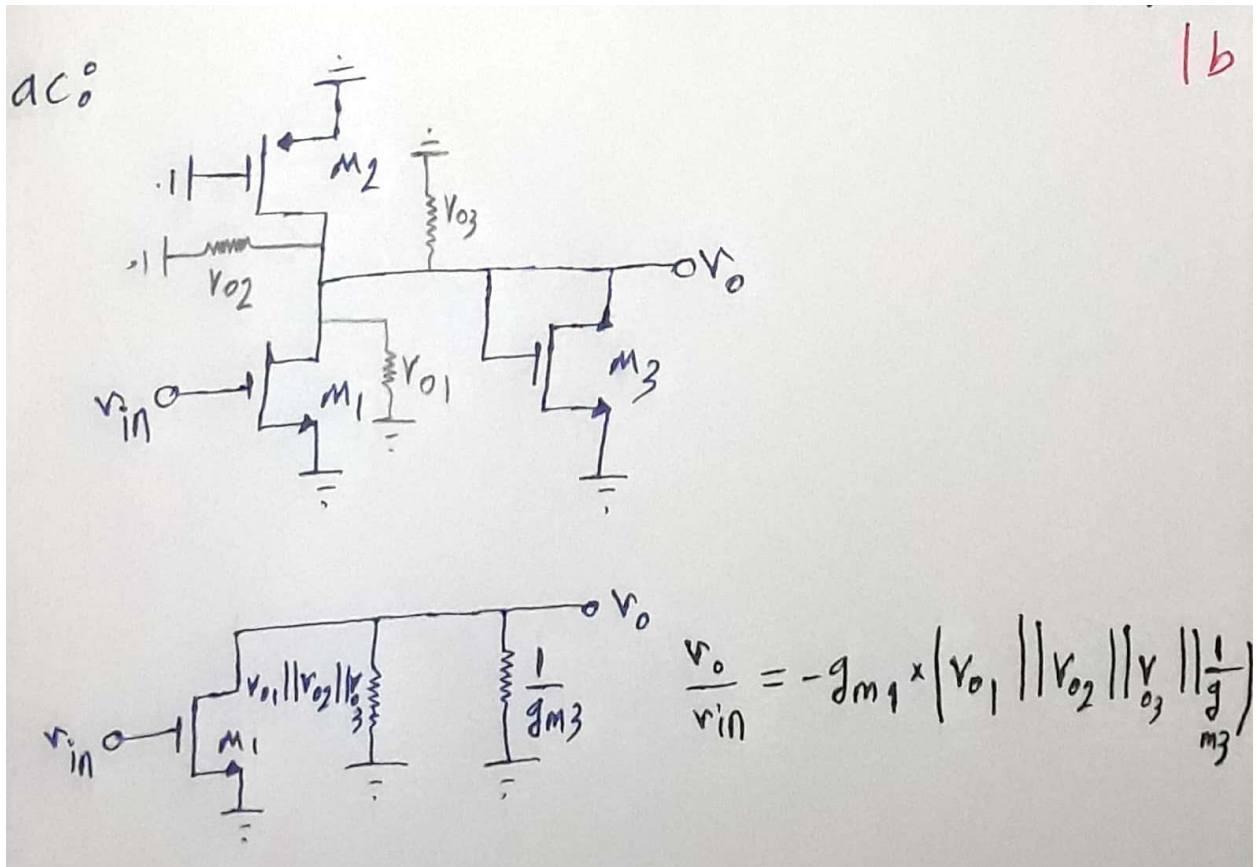 1b
ac:
M2
ro3
ro2
vo
vin
M1
ro1
M3
vo
ro1||ro2||ro3
1/gm3
vin
M1
vo/vin = -gm1 × (ro1 || ro2 || ro3 || 1/gm3)